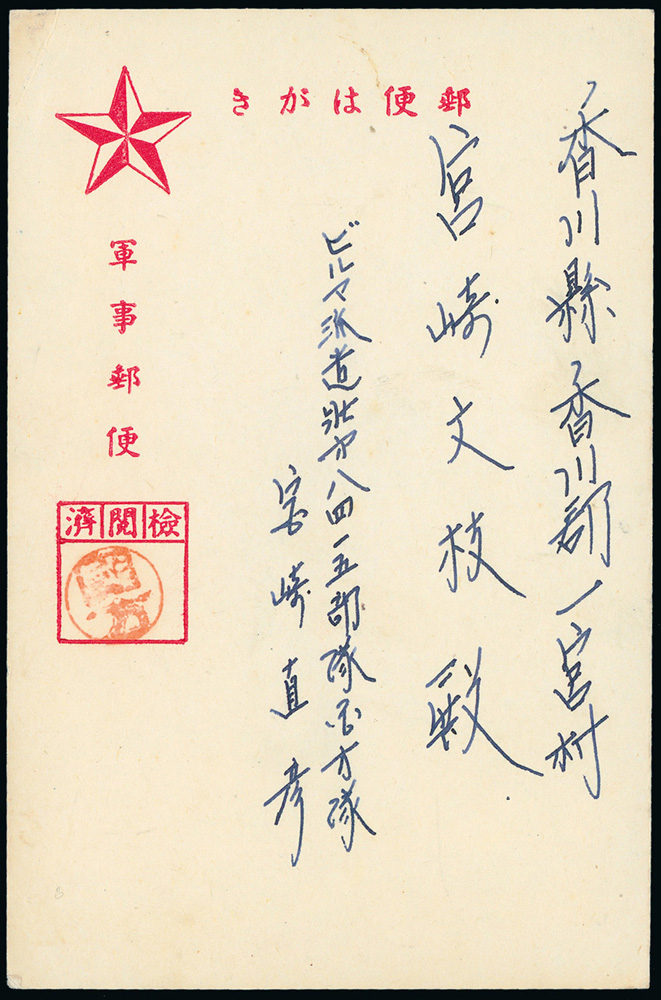 郵便はがき
香川縣香川郡一宮村
宮崎文枝殿
ビルマ派遣壯第八四一五部隊方隊
宮崎直彦
軍事郵便
檢閲濟